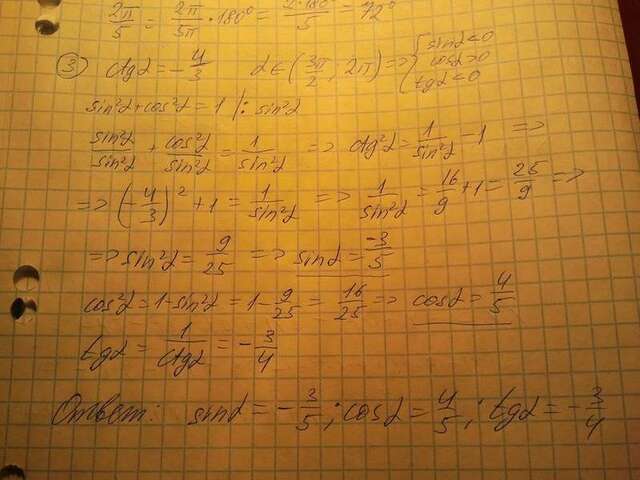 2π/5 = 2π/5π · 180° = 2·180°/5 = 72°
③ ctgα = -4/3 α ∈ (3π/2; 2π) => { sinα<0 cosα>0 tgα<0
sin²α + cos²α = 1 |: sin²α
sin²α/sin²α + cos²α/sin²α = 1/sin²α => ctg²α = 1/sin²α - 1 =>
=> (-4/3)² + 1 = 1/sin²α => 1/sin²α = 16/9 + 1 = 25/9 =>
=> sin²α = 9/25 => sinα = -3/5
cos²α = 1 - sin²α = 1 - 9/25 = 16/25 => cosα = 4/5
tgα = 1/ctgα = -3/4
Ответ: sinα = -3/5; cosα = 4/5; tgα = -3/4